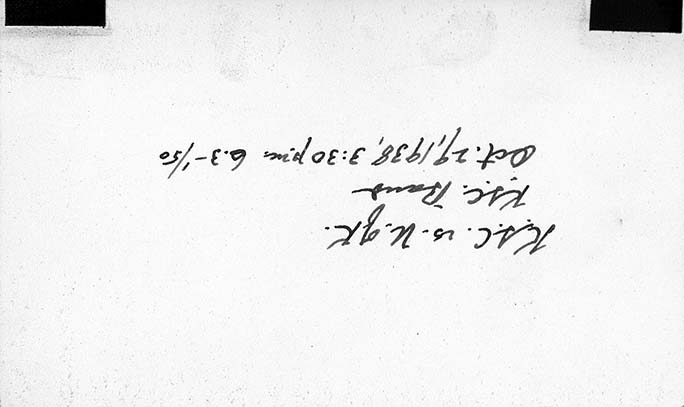 K.S.C. vs. U. of K.
K.S.C. Band
Oct. 29, 1938, 3:30 p.m. 6.3 - 1/50